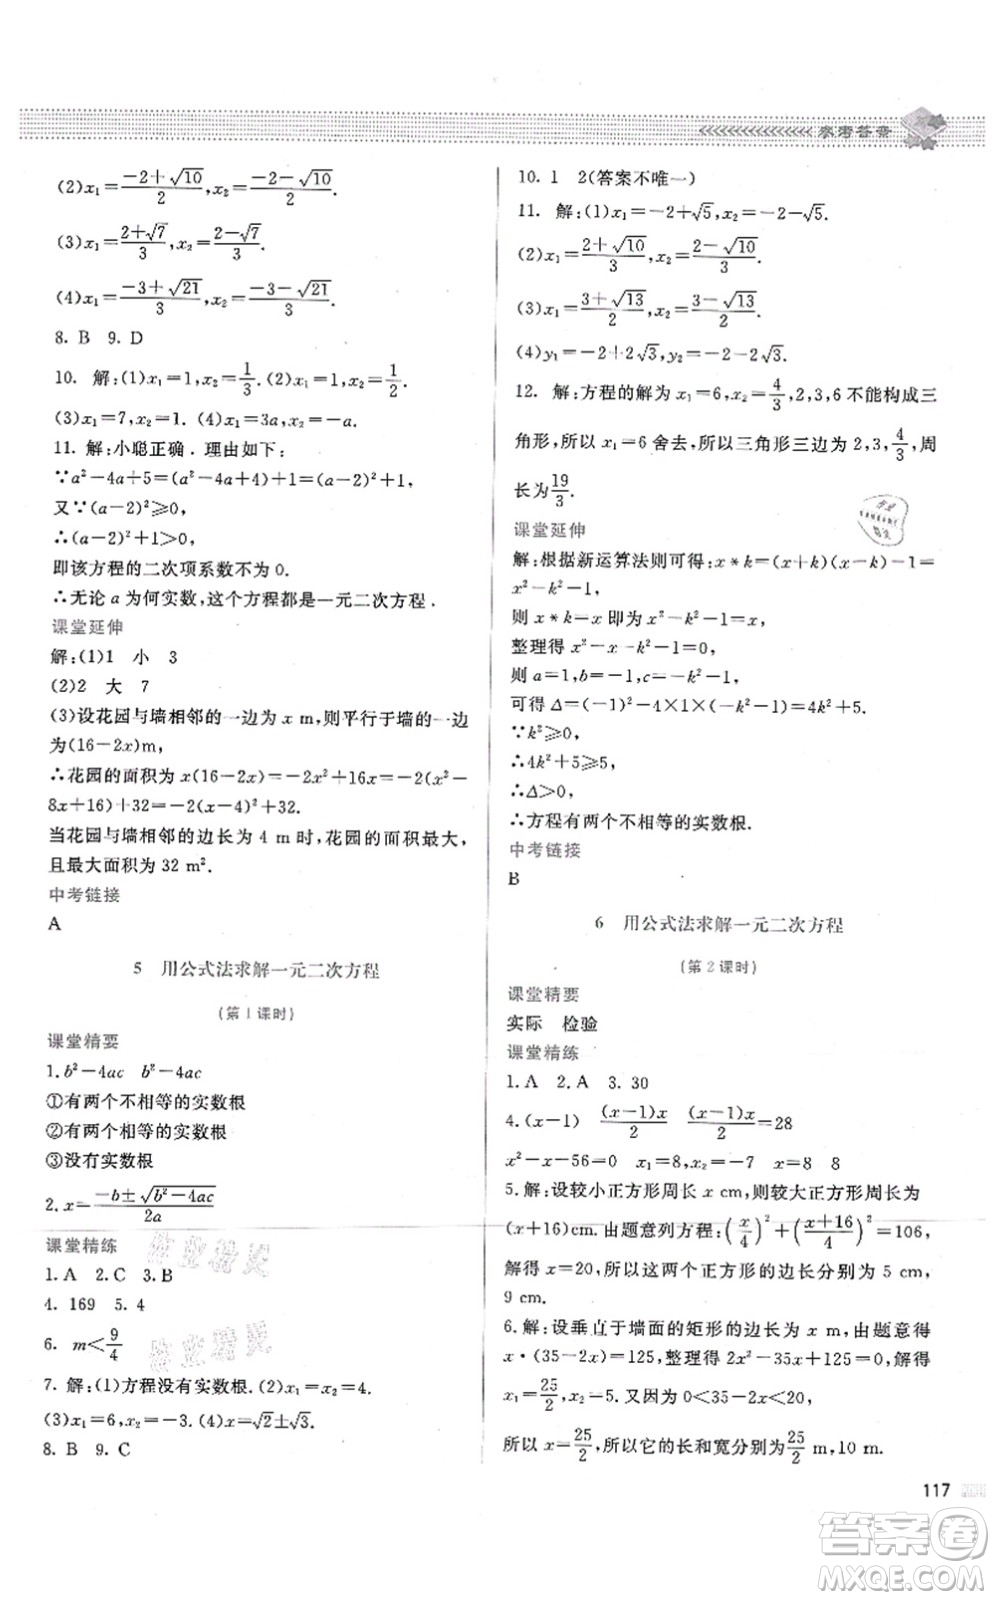 参考答案
(2)x₁=(-2+√10)/2,x₂=(-2-√10)/2.
(3)x₁=(2+√7)/3,x₂=(2-√7)/3.
(4)x₁=(-3+√21)/3,x₂=(-3-√21)/3.
8. B 9. D
10. 解:(1)x₁=1,x₂=1/3.(2)x₁=1,x₂=1/2.
(3)x₁=7,x₂=1. (4)x₁=3a,x₂=-a.
11. 解:小聪正确. 理由如下:
∵a²-4a+5=(a²-4a+4)+1=(a-2)²+1,
又∵(a-2)²≥0,
∴(a-2)²+1>0,
即该方程的二次项系数不为 0.
∴无论 a 为何实数,这个方程都是一元二次方程.
课堂延伸
解:(1)1 小 3
(2)2 大 7
(3)设花园与墙相邻的一边为 x m,则平行于墙的一边
为(16-2x)m,
∴花园的面积为 x(16-2x)=-2x²+16x=-2(x²-
8x+16)+32=-2(x-4)²+32.
当花园与墙相邻的边长为 4 m时,花园的面积最大,
且最大面积为 32 m².
中考链接
A
5 用公式法求解一元二次方程
(第1课时)
课堂精要
1. b²-4ac b²-4ac
①有两个不相等的实数根
②有两个相等的实数根
③没有实数根
2. x=(-b±√(b²-4ac))/2a
课堂精练
1. A 2. C 3. B
4. 169 5. 4
6. m<9/4
7. 解:(1)方程没有实数根.(2)x₁=x₂=4.
(3)x₁=6,x₂=-1.(4)x=√2±√3.
8. B 9. C
10. 1 2(答案不唯一)
11. 解:(1)x₁=-2+√5,x₂=-2-√5.
(2)x₁=(2+√10)/3,x₂=(2-√10)/3.
(3)x₁=(3+√13)/2,x₂=(3-√13)/2.
(4)y₁=-2+2√3,y₂=-2-2√3.
12. 解:方程的解为 x₁=6,x₂=4/3,2,3,6 不能构成三
角形,所以 x₁=6 舍去,所以三角形三边为 2,3,4/3,周
长为19/3.
课堂延伸
解:根据新运算法则可得:x*k=(x+k)(x-k)-1=
x²-k²-1,
则 x*k=x 即为 x²-k²-1=x,
整理得 x²-x-k²-1=0,
则 a=1,b=-1,c=-k²-1,
可得 Δ=(-1)²-4×1×(-k²-1)=4k²+5.
∵k²≥0,
∴4k²+5≥5,
∴Δ>0,
∴方程有两个不相等的实数根.
中考链接
B
6 用公式法求解一元二次方程
(第2课时)
课堂精要
实际 检验
课堂精练
1. A 2. A 3. 30
4. (x-1) (x-1)x/2 (x-1)x/2=28
x²-x-56=0 x₁=8,x₂=-7 8 8
5. 解:设较小正方形周长 x cm,则较大正方形周长为
(x+16)cm. 由题意列方程:(x/4)²+((x+16)/4)²=106,
解得 x=20,所以这两个正方形的边长分别为 5 cm,
9 cm.
6. 解:设垂直于墙面的矩形的边长为 x m,由题意得
x·(35-2x)=125,整理得 2x²-35x+125=0,解得
x₁=25/2,x₂=5. 又因为 0<35-2x<20,
所以 x=25/2,所以它的长和宽分别为25/2 m,10 m.
117
答案卷
MXQE.COM
作业精灵
作业精灵